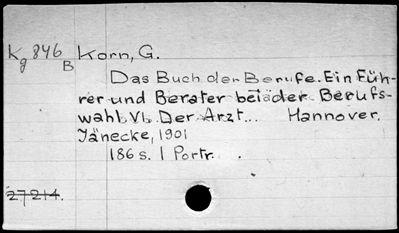 Kg 846 B Korn, G.
Das Buch der Berufe. Ein Füh-
rer und Berater bei der Berufs-
wahl VI. Der Arzt... Hannover.
Jänecke, 1901
186 s. 1 Portr.
27214.